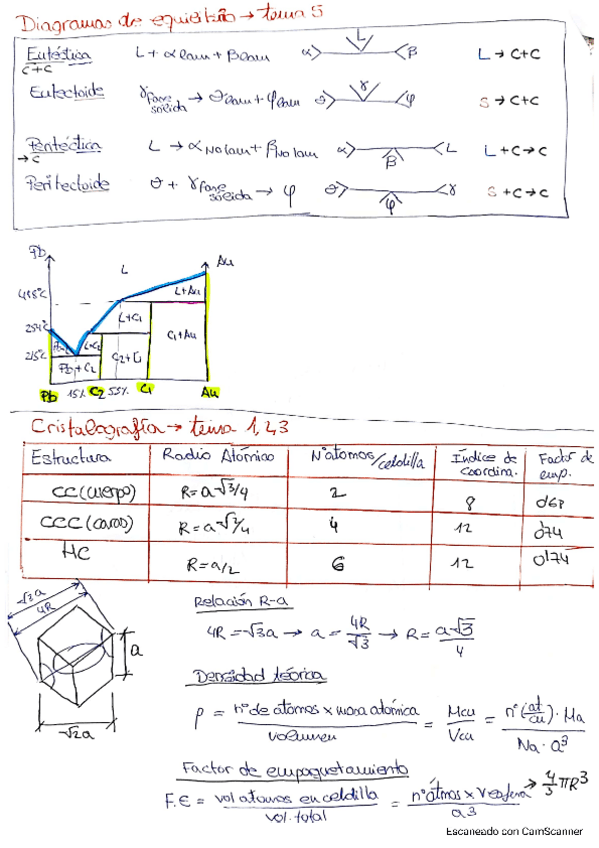 Diagramas de equilibrio → tema 5
Eutéctica L + α lam + β lam α L β L → C+C
C+C
Eutectoide γ fase sólida → ϑ lam + φ lam ϑ γ φ S → C+C
Peritéctica L → α No lam + β No lam α β L L + C → C
→ C
Peritectoide ϑ + γ fase sólida → φ ϑ φ γ S + C → C
Pb Au
L
418°C
L+Au
L+C1
254°C
L+C2
C1+Au
215°C
Pb+C2
C2+C1
Pb 15% C2 55% C1 Au
Cristalografía → tema 1,2,3
Estructura Radio Atómico Nº atomos/celdilla Índice de coordina. Factor de emp.
CC (cuerpo) R = a√3/4 2 8 0'68
CCC (caras) R = a√2/4 4 12 0'74
HC R = a/2 6 12 0'74
√3a
4R
a
√2a
Relación R-a
4R = √3a → a = 4R/√3 → R = a√3/4
Densidad teórica
ρ = nº de atomos x masa atómica / volumen = Mcu/Vcu = nº(at/cu)·Ma / Na·a³
Factor de empaquetamiento
F.E = vol atomos en celdilla / vol. total = nº átmos x V esfera / a3 → 4/3 πR³
Escaneado con CamScanner